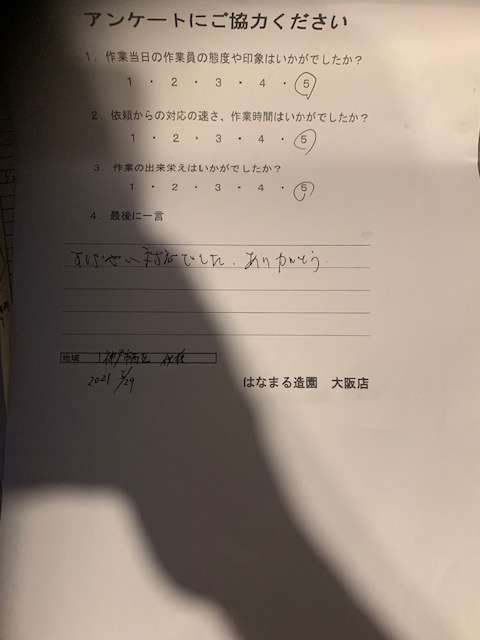 アンケートにご協力ください
1. 作業当日の作業員の態度や印象はいかがでしたか？
1 ・ 2 ・ 3 ・ 4 ・ 5
2. 依頼からの対応の速さ、作業時間はいかがでしたか？
1 ・ 2 ・ 3 ・ 4 ・ 5
3. 作業の出来栄えはいかがでしたか？
1 ・ 2 ・ 3 ・ 4 ・ 5
4. 最後に一言
すばやい対応でした。ありがとう。
地域 神戸市西区
2021 /29
はなまる造園 大阪店